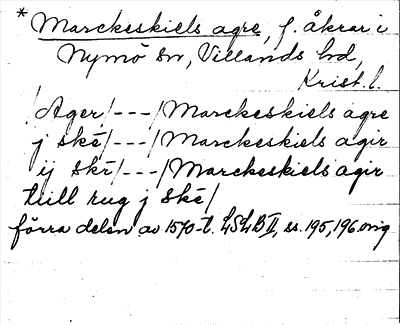 * Marckeskiels agre, f. åkrar i
Nymö sn, Villands hd,
Krist. l.
/Ager/---/Marckeskiels agre
j ské/---/Marckeskiels agir
ij ské/---/Marckeskiels agir
tiill rug j ské/
förra delen av 1570-t. LSLB II, ss. 195, 196 orig